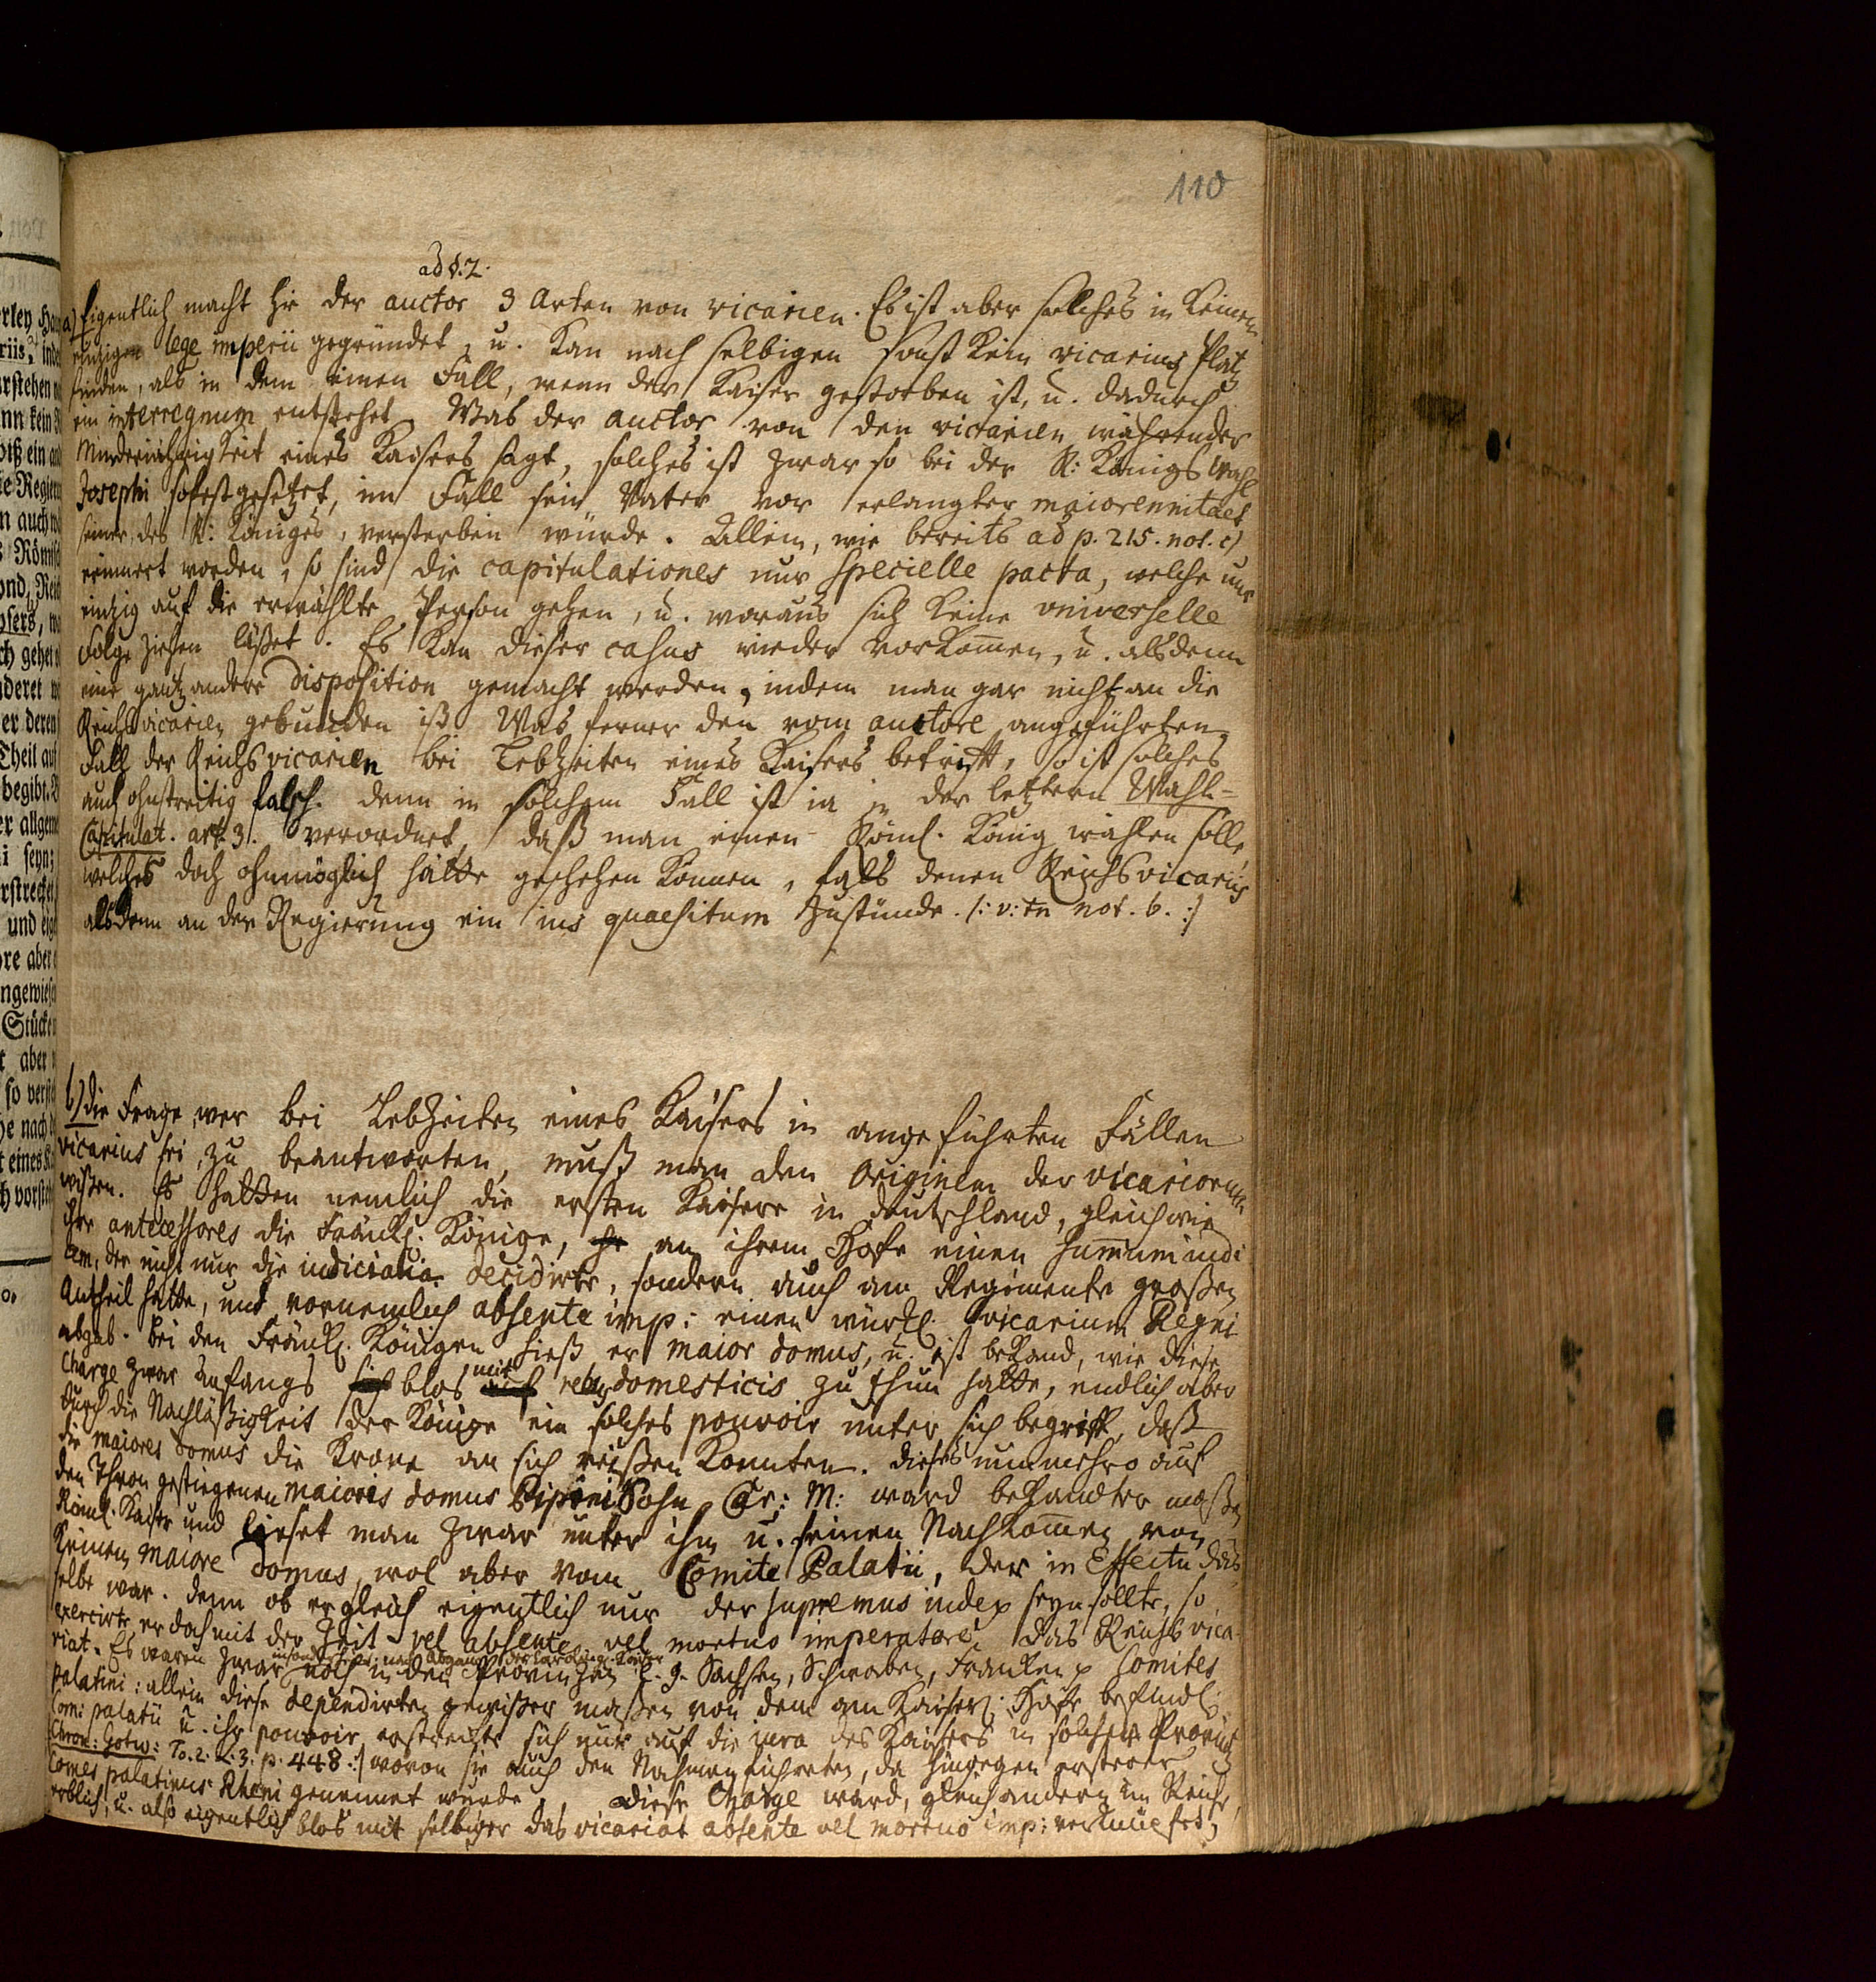 110
ad §. 2.
a) Eigentlich macht hir der auctor 3 Arten von vicarien. Es ist aber solches in keinem
einzigen lege imperii gegründet, u. kan nach selbigen sonst kein vicarius Platz
finden, als in dem einen Fall, wenn der Kaiser gestorben ist, u. dadurch
ein interregnum entstehet. Was der auctor von den vicarien währender
Minderiährigkeit eines Kaisers sagt, solches ist zwar so bei der R: Königs Wahl
Josephi, sofestgesetzt, im Fall sein Vater vor erlangter maiorennitaet
seiner, des R: Königes, versterben würde. Allein, wie bereits ad p. 215. not. c)
erinnert worden, so sind die capitulationes nur specielle pacta, welche nur
einzig auf die erwählte Person gehen, u. woraus sich keine vniverselle
Folge ziehen läßet. Es kan dieser casus wieder vorkom̅en, u. alsdenn
eine gantz andere disposition gemacht werden, indem man gar nicht an die
Reichsvicarien gebunden ist. Was ferner den vom auctore angeführten
Fall der Reichsvicarien bei Lebzeiten eines Kaisers betrifft, so ist solches
auch ohnstreitig falsch. denn in solchem Fall ist ia in der letztern Wahl-
Capitulat. art. 3. verordnet, daß man einen Röml. König wählen solle,
welches doch ohnmöglich hätte geschehen können, falls denen Reichsvicariis
alsdenn an der Regierung ein ius quaesitum zustünde. /: v: tn not. b. :/
b) die Frage, wer bei Lebzeiten eines Kaisers in angeführten Fällen
vicarius sei, zu beantworten, muß man den Originem der vicariorum
wißen. Es hatten nemlich die ersten Kaisere in deutschland, gleichwie
ihre antecessores die Fränkl. Könige, an ihrem Hofe einen sum̅um iudi
cem, der nicht nur die iudicialia decidirte, sondern auch am Regimente großen
Antheil hatte, und vornemlich absente imp: einen würkl. vicarium Regni
abgab. bei den Fränkl. Königen hieß er maior domus, u. ist bekand, wie diese
Charge zwar anfangs blos mit rebus domesticis zu thun hatte, endlich aber
durch die Nachläßigkeit der Könige ein solches pouvoir unter sich begriff, daß
die maiores domus die Krone an sich reißen konnten. dieses nunmehro auf
den Thron gestiegenen maioris domus Pipini Sohn, Car: M: ward bekandter maßen
Röml. Kaiser und lieset man zwar unter ihm u. seinen Nachkom̅en von
keinem maiore domus, wol aber vom Comite Palatii, der in Effectu das
selbe war. denn ob er gleich eigentlich nur der supremus iudex seyn sollte, so
exercirte er doch mit der Zeit vel absente vel mortuo imperatore das Reichs vica-
riat. Es waren zwar
insonderheit nach Abgang der Caroling. Kaiser
noch in den Provinzen e. g. Sachsen, Schwaben, Francken p Comites
palatini: allein diese dependirten gewißer maßen von dem am Kaiserl. Hofe befindl.
Com: palatii u. ihr pouvoir erstreckte sich nur auf die iura des Kaisers in solcher Provinz
Chron: Gotw: To. 2. L. 3. p. 448 :/ wovon sie auch den Nahmen führeten, da hingegen ersterer
Comes palatinus Rheni genennet wurde. diese Charge ward, gleich andern im Reiche,
erblich, u. also eigentlich blos mit selbiger das vicariat absente vel mortuo imp: verknüpfet,